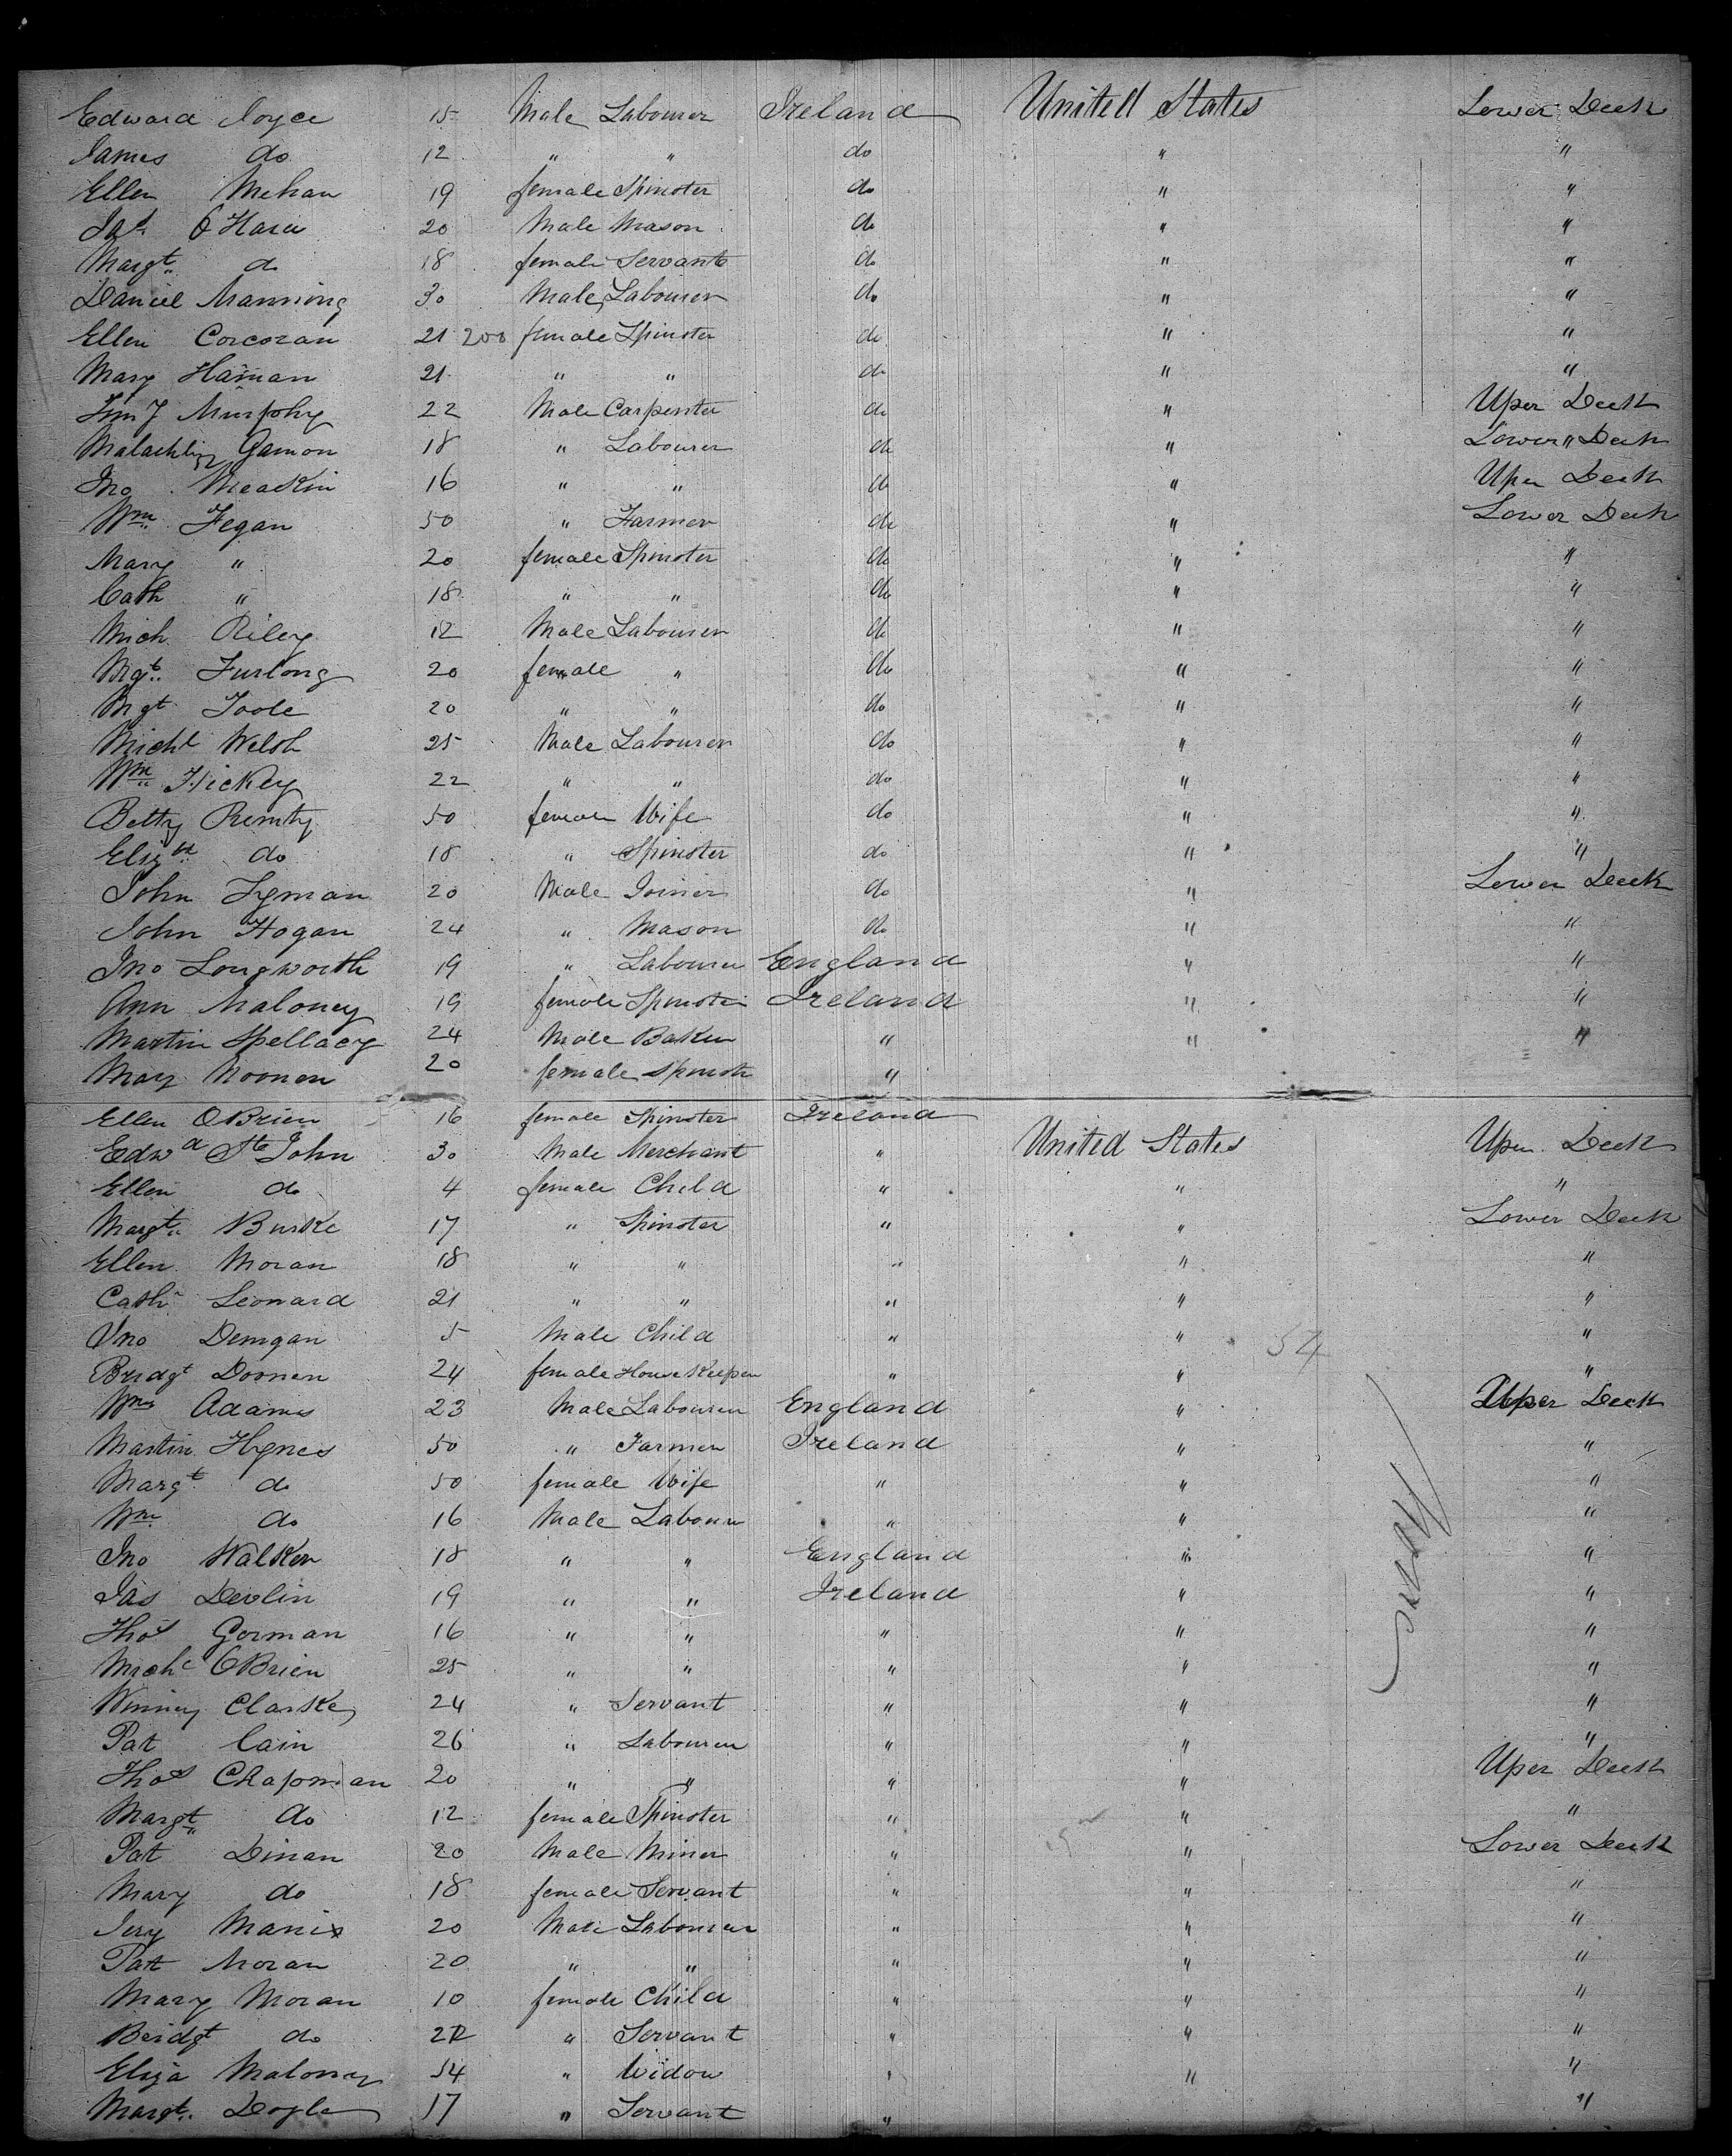 Edward Joyce 15 Male Labourer Ireland United States Lower Deck
James do 12 " " do " "
Ellen Mehan 19 female Spinster do " "
Jas O'Hara 20 Male Mason do " "
Margt do 18 female Servant do " "
Daniel Manning 30 Male Labourer do " "
Ellen Corcoran 21 200 female Spinster do " "
Mary Hanan 21 " " do " "
Murphy 22 Male Carpenter do " Uper Deck
Gamon 18 " Labourer do " Lower " Deck
Jno Meakin 16 " " do " Uper Deck
Wm Fegan 50 " Farmer do " Lower Deck
Mary " 20 female Spinster do " "
Cath " 18 " " do " "
Mich Riley 12 Male Labourer do " "
Mgt Furlong 20 female " do " "
Mgt Toole 20 " " do " "
Michl Welsh 25 Male Labourer do " "
Wm Hickey 22 " " do " "
Betty 50 female Wife do " "
Elizth do 18 " Spinster do " "
John Lyman 20 Male Joiner do " Lower Deck
John Hogan 24 " Mason do " "
Jno Longworth 19 " Labourer England " "
Ann Maloney 19 female Spinster Ireland " "
Martin Spellacy 24 Male Baker " " "
Mary Noonen 20 female Spinster "
Ellen OBrien 16 female Spinster Ireland
Edwd St John 30 Male Merchant " United States Uper Deck
Ellen do 4 female Child " " "
Margt Burke 17 " Spinster " " Lower Deck
Ellen Moran 18 " " " " "
Cath Leonard 21 " " " " "
Jno Demgan 5 Male Child " " 54 "
Bridgt Doonen 24 female HouseKeeper " " "
Wm Adams 23 Male Labourer England " Uper Deck
Martin Hynes 50 " Farmer Ireland " "
Margt do 50 female Wife " " "
Wm do 16 Male Labourer " " "
Jno Walker 18 " " England " "
Jas Devlin 19 " " Ireland " "
Thos Gorman 16 " " " " "
Michl OBrien 25 " " " " "
Winney Clarke 24 " Servant " " "
Pat Cain 26 " Labourer " " "
Thos Chapman 20 " " " " Uper Deck
Margt do 12 female Spinster " " "
Pat Dinan 20 Male Miner " " Lower Deck
Mary do 18 female Servant " " "
Jery Manix 20 Male Labourer " " "
Pat Moran 20 " " " " "
Mary Moran 10 female Child " " "
Bridgt do 22 " Servant " " "
Eliza Maloney 54 " Widow " " "
Margt Doyle 17 " Servant " "